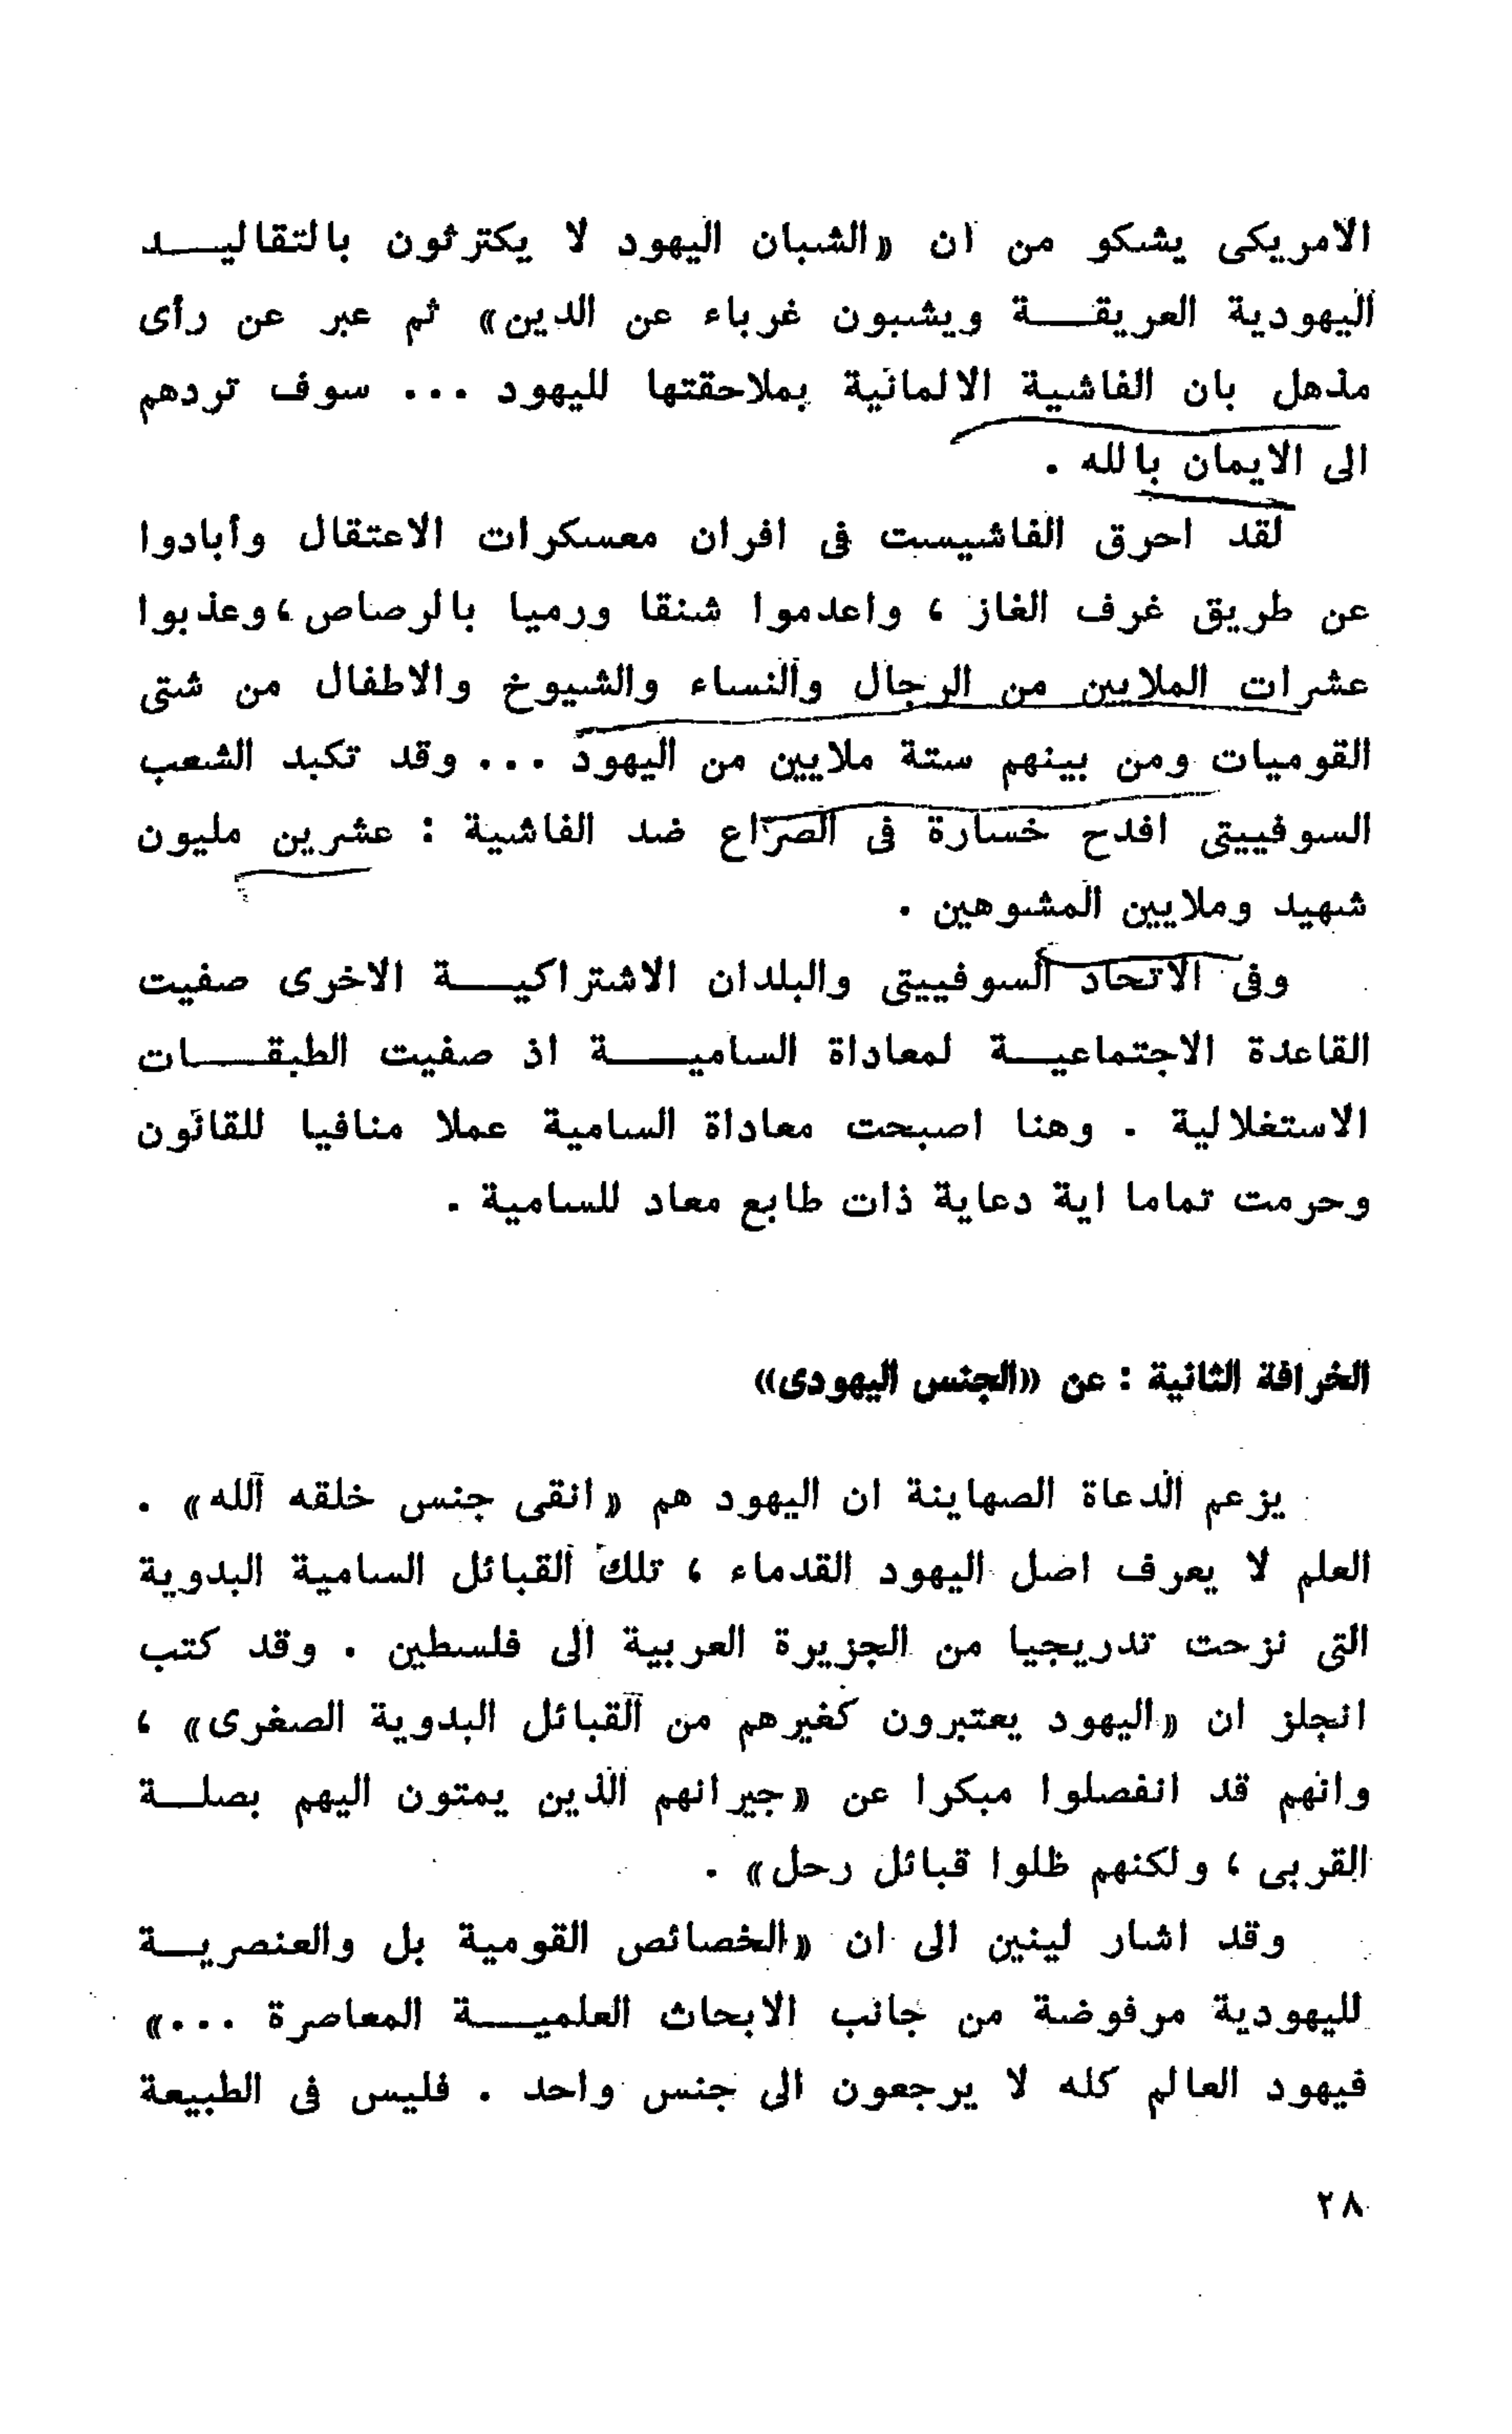 الامريكى يشكو من ان «الشبان اليهود لا يكترثون بالتقاليد
اليهودية العريقة ويشبون غرباء عن الدين» ثم عبر عن رأى
مذهل بان الفاشية الالمانية بملاحقتها لليهود ... سوف تردهم
الى الايمان بالله .
لقد احرق الفاشيست فى افران معسكرات الاعتقال وأبادوا
عن طريق غرف الغاز ، واعدموا شنقا ورميا بالرصاص ، وعذبوا
عشرات الملايين من الرجال والنساء والشيوخ والاطفال من شتى
القوميات ومن بينهم ستة ملايين من اليهود ... وقد تكبد الشعب
السوفييتى افدح خسارة فى الصراع ضد الفاشية : عشرين مليون
شهيد وملايين المشوهين .
وفى الاتحاد السوفييتى والبلدان الاشتراكية الاخرى صفيت
القاعدة الاجتماعية لمعاداة السامية اذ صفيت الطبقات
الاستغلالية . وهنا اصبحت معاداة السامية عملا منافيا للقانون
وحرمت تماما اية دعاية ذات طابع معاد للسامية .
الخرافة الثانية : عن «الجنس اليهودى»
يزعم الدعاة الصهاينة ان اليهود هم «انقى جنس خلقه الله» .
العلم لا يعرف اصل اليهود القدماء ، تلك القبائل السامية البدوية
التى نزحت تدريجيا من الجزيرة العربية الى فلسطين . وقد كتب
انجلز ان «اليهود يعتبرون كغيرهم من القبائل البدوية الصغرى» ،
وانهم قد انفصلوا مبكرا عن «جيرانهم الذين يمتون اليهم بصلة
القربى ، ولكنهم ظلوا قبائل رحل» .
وقد اشار لينين الى ان «الخصائص القومية بل والعنصرية
لليهودية مرفوضة من جانب الابحاث العلمية المعاصرة ...»
فيهود العالم كله لا يرجعون الى جنس واحد . فليس فى الطبيعة
٢٨